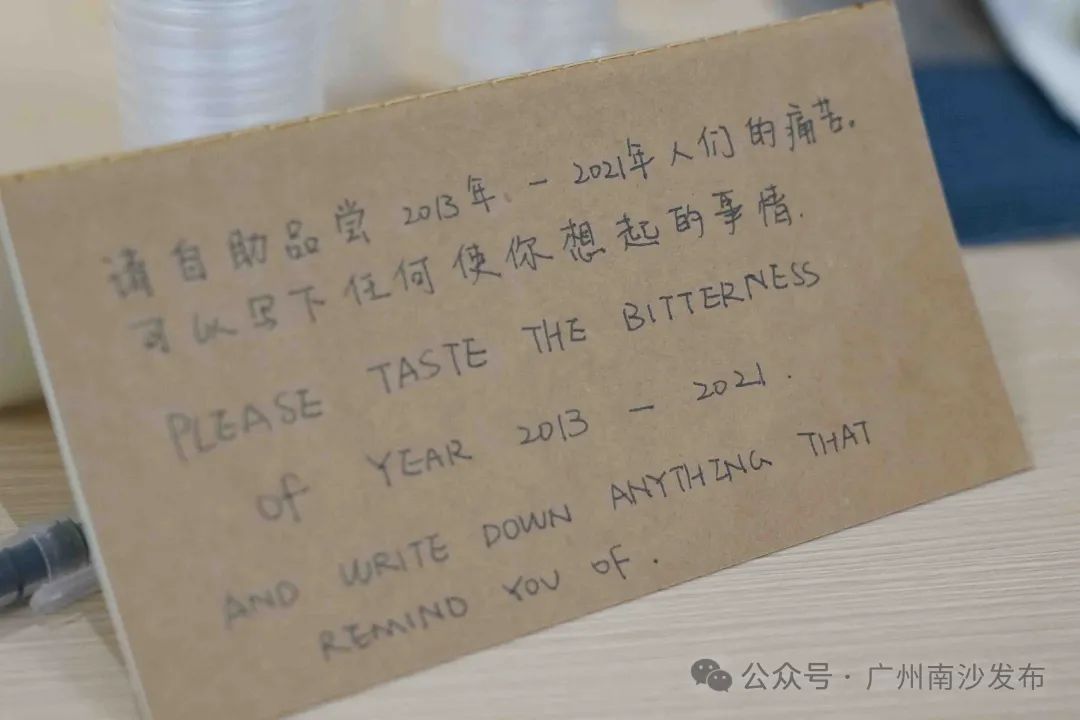 请自助品尝 2013年 - 2021年人们的痛苦.
可以写下任何使你想起的事情.
PLEASE TASTE THE BITTERNESS
of YEAR 2013 - 2021.
AND WRITE DOWN ANYTHING THAT
REMIND YOU OF.
公众号·广州南沙发布